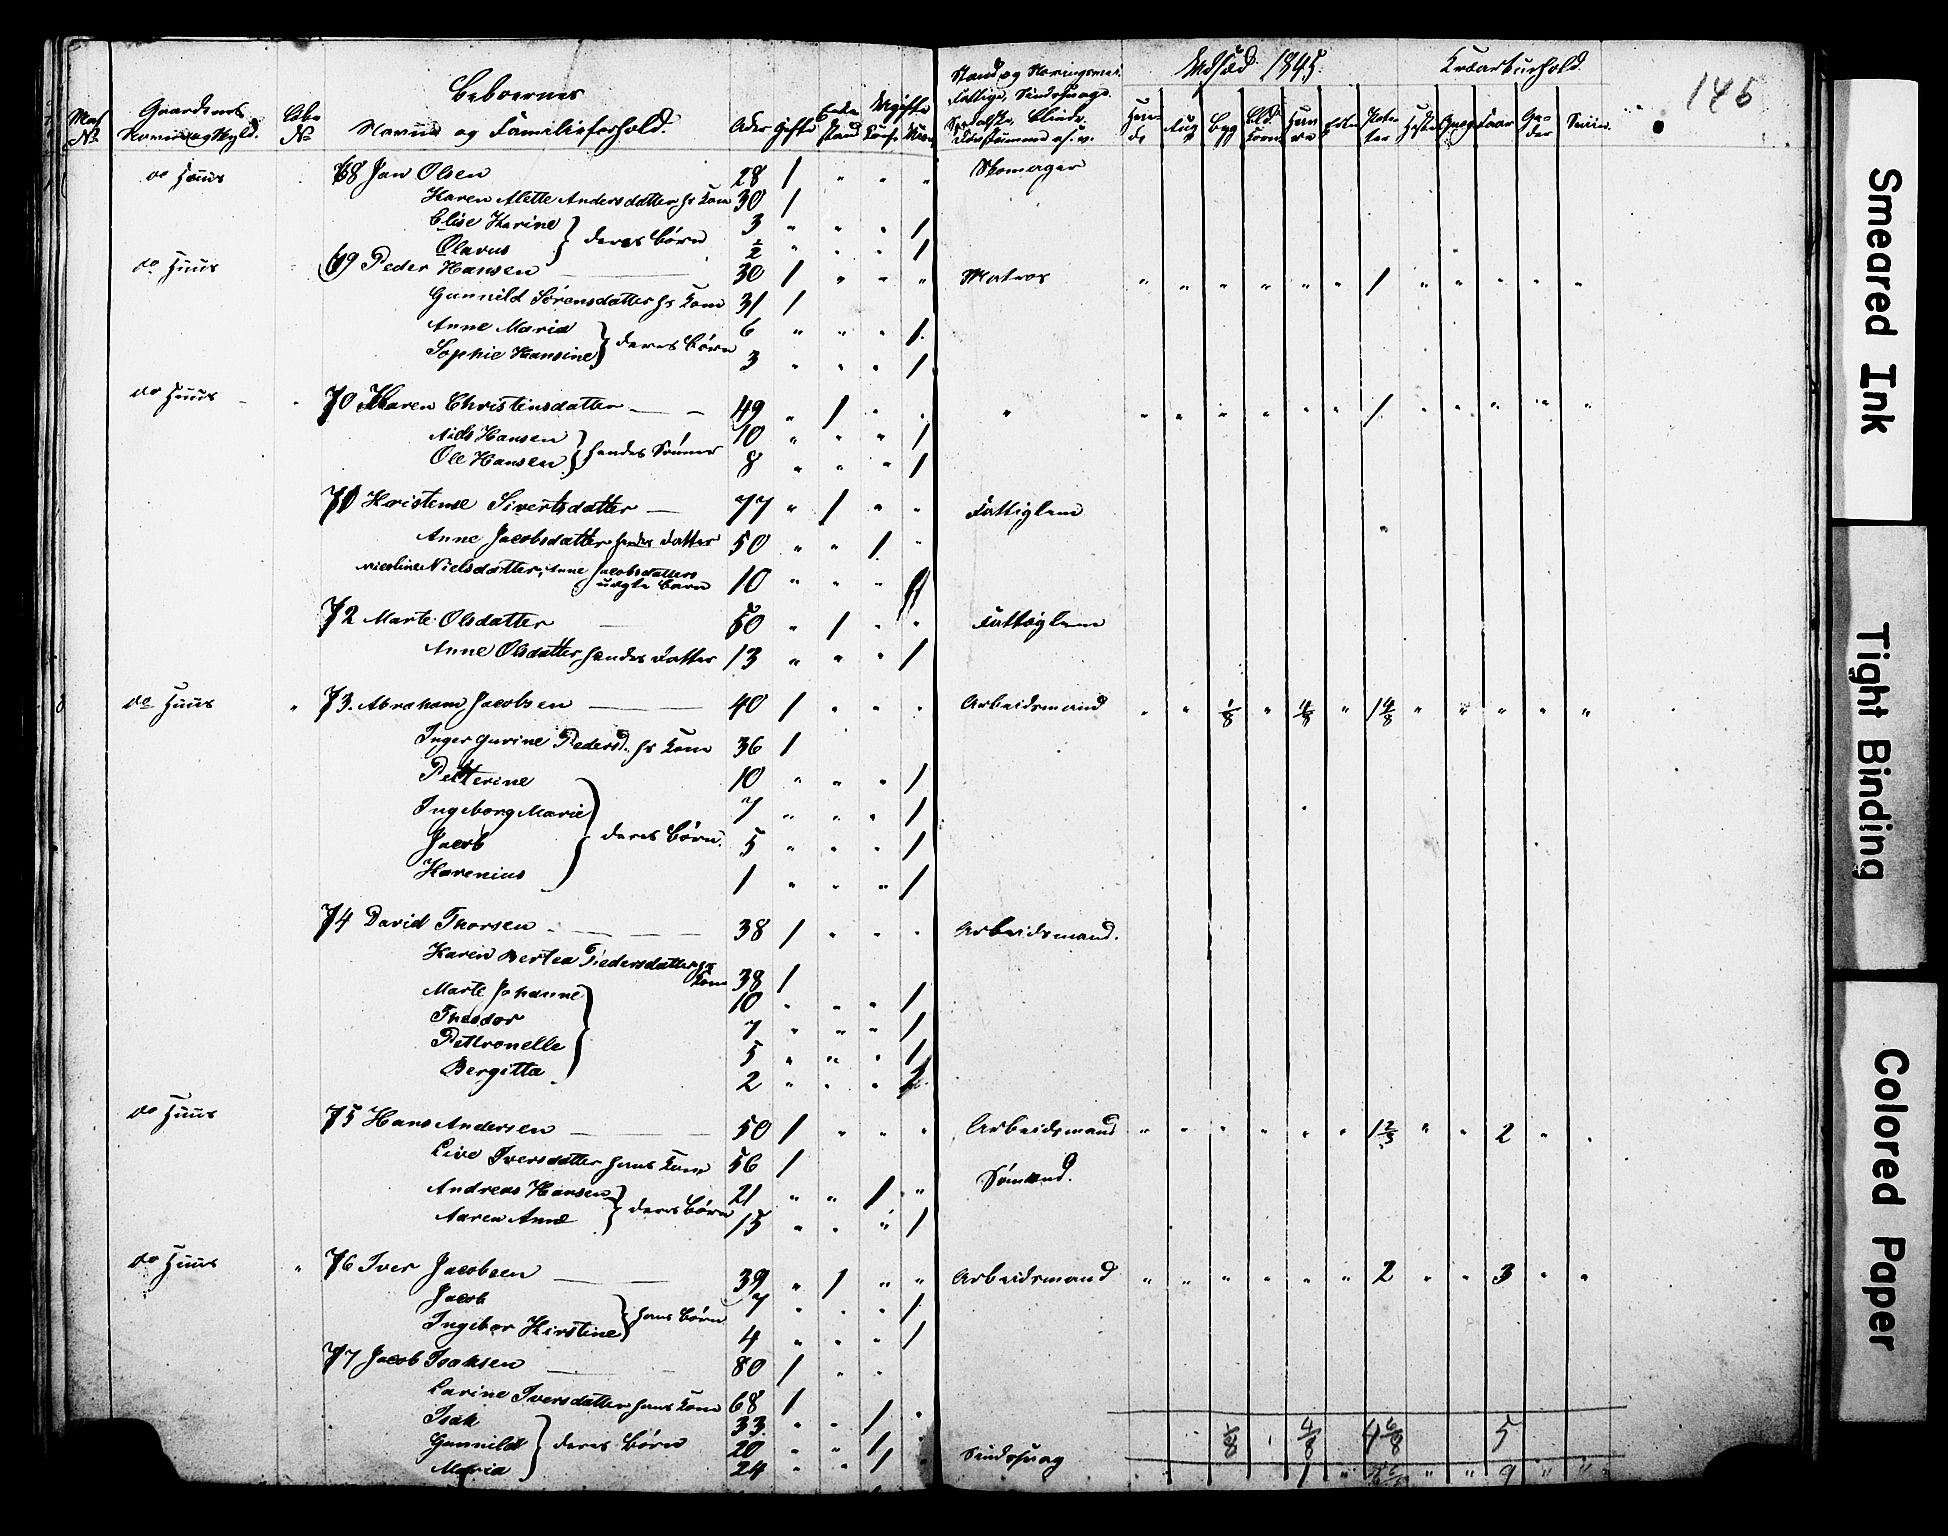 Beboernes
Stand og Næringsvei. Udsæd 1845. Kreaturhold.
Mat Gaardenes Lbe Enke Ugifte Fattige, Sindssvage.
No Navn og Familieforhold. No Alder Gifte Stand Byg Heste Faar Sviin.
146
do Huus 68 Jan Olsen 28 1 " " " Skomager
Karen Mette Andersdatter hs Kone 30 1
Elise Karine } deres Børn 3 " " " 1
Olavus ½ " " " 1
do Huus 69 Peder Hansen 30 1 " " " Matros " " " " " " 1 " " " " "
Gunnild Sørensdatter hs Kone 31 1
Anne Maria } deres Børn 6 " " " 1.
Sophie Hansine 3 " " " 1
do Huus 70 Maren Christensdatter 49 " 1 " " " " " " " " " 1 " " " " "
Niels Hansen } hendes Sønner 10 " " " 1
Ole Hansen 8 " " " 1
71 Kristense Sivertsdatter 77 " 1 " " Fattiglem
Anne Jacobsdatter hendes Datter 50 " " 1 "
Nicoline Nielsdatter, Anne Jacobsdatters
uægte Barn 10 " " " 1
72 Marte Olsdatter 50 " 1 " " Fattiglem
Anne Olsdatter hendes Datter 13 " " " 1
do Huus " 73. Abraham Jacobsen 40 1 " " " Arbeidsmand " " 1/8 " 4/8 " 1 4/8 " " " " "
Inger Gurine Pedersd. hs Kone 36 1
Petterine 10 " " " 1
Ingeborg Marie 7 " " " 1
Jacob } deres Børn. 5 " " " 1
Karenius 1 " " " 1
74 David Thorsen 38 1 " " " Arbeidsmand.
Karen Bertea Pedersdatter hs
Kone 38 1
Marte Johanne 10 " " " 1
Theodor 7 " " " 1
Pettronelle 5 " " " 1
Bergitta 2 " " " 1
do Huus 75 Hans Andersen 50 1 " " " Arbeidsmand " " " " " " 1 2/3 " " 2 " "
Live Iversdatter hans Kone 56 1
Andreas Hansen } deres Børn 21 " " 1 " Sømand.
Maren Anne 15 " " " 1
do Huus " 76 Iver Jacobsen 39 " 1 " " Arbeidsmand " " " " " " 2 " " 3 " "
Jacob } hans Børn 7 " " " 1
Ingebor Kirstine 4 " " " 1
77 Jacob Isaksen 80 1 " "
Larine Iversdatter hans Kone 68 1
Isak } deres Børn 33. " " 1 "
Gunnild 20 " " 1 1/8 4/8 4 6/8 5
Maria 24 " " 1 Sindssvag
1 " " " 9 " " "
Smeared Ink
Tight Binding
Colored Paper